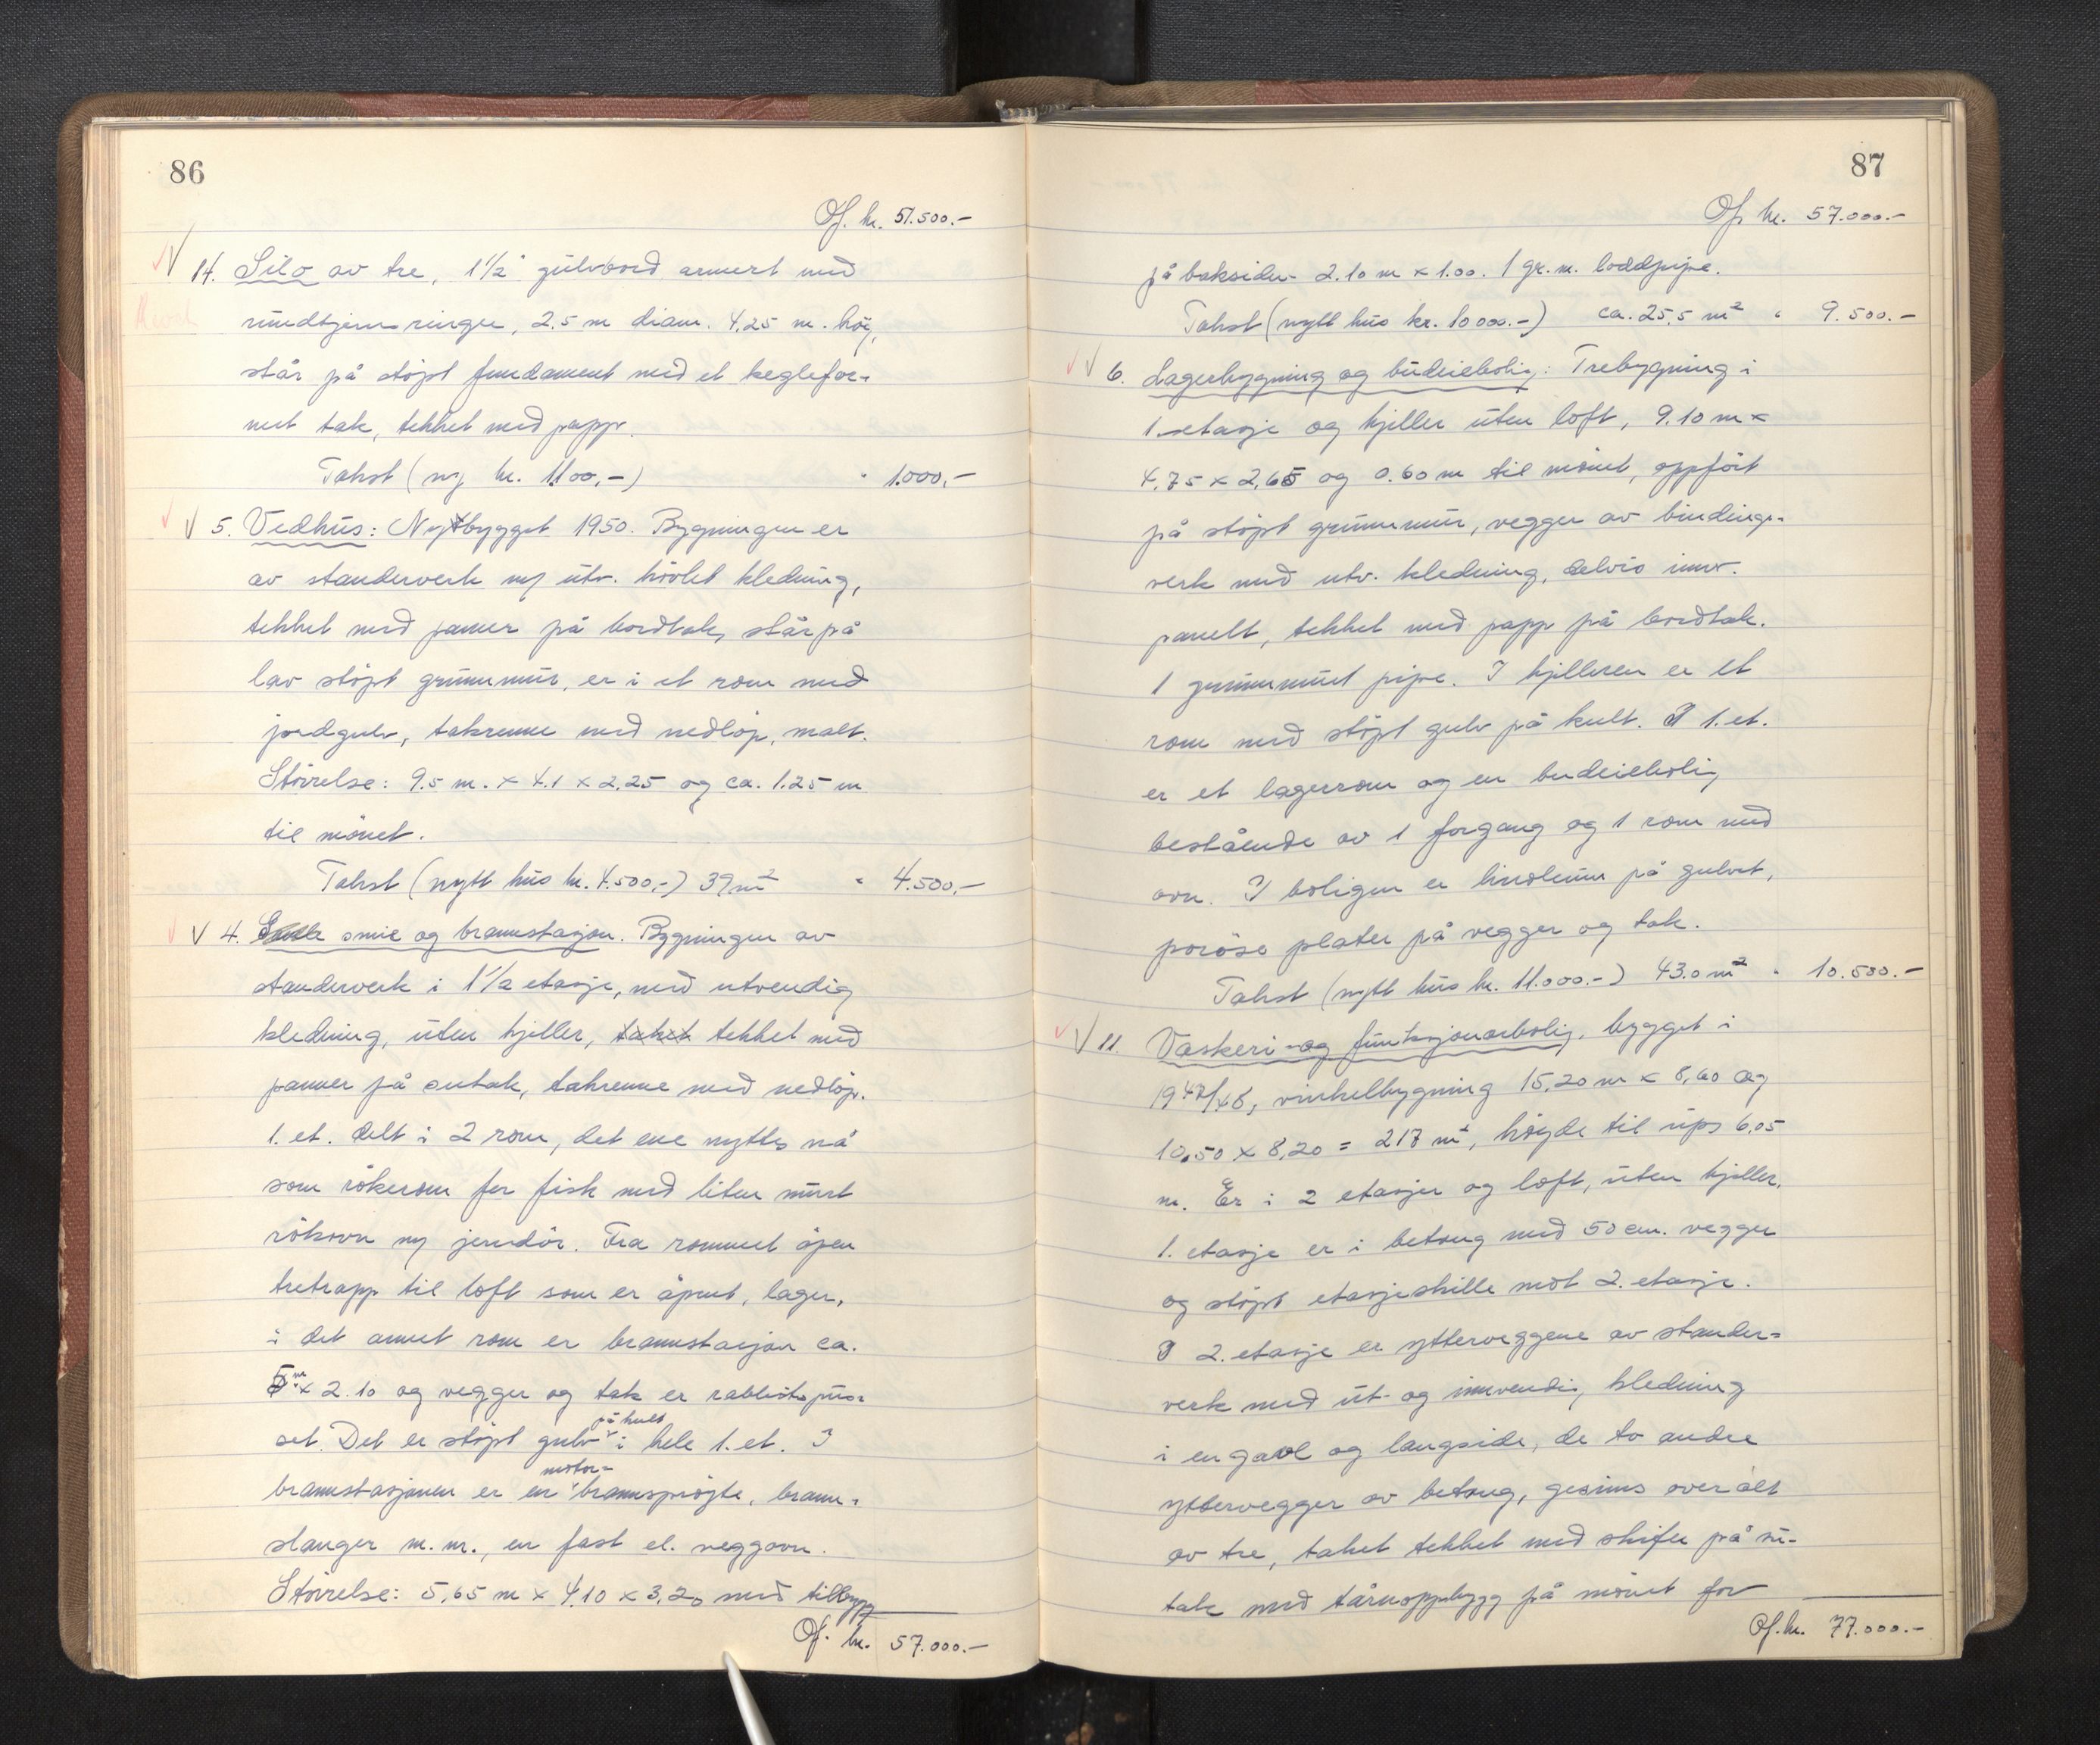 86
Of. kr. 51.500.-
14. Silo av tre, 1 1/2" gulvbord armert med
rundtjernsringer, 2.5 m diam. 4,25 m. høy,
står på støpt fundament med et keglefor-
met tak, tekket med papp.
Takst (ny kr. 1100,-) " 1.000,-
5. Vedhus: Nybygget 1950. Bygningen er
av standerverk m/ utv. høvlet kledning,
tekket med panner på bordtak, står på
lav støpt grunnmur, er i et rom med
jordgulv, takrenne med nedløp, malt.
Størrelse: 9.5 m. x 4.1 x 2,25 og ca. 1.25 m
til mønet.
Takst (nytt hus kr. 4.500,-) 39 m2 " 4.500,-
4. smie og brannstasjon. Bygningen av
standerverk i 1 1/2 etasje, med utvendig
kledning, uten kjeller, taket tekket med
panner på sutak, takrenne med nedløp.
1. et. delt i 2 rom, det ene nyttes nå
som røkerom for fisk med liten murt
røkovn m/ jerndør. Fra rommet åpen
tretrapp til loft som er åpent, lager,
i det annet rom er brannstasjon ca.
5 m x 2.10 og vegger og tak er rabbitspus-
set. Det er støpt gulv på kult i hele 1. et. I
brannstasjonen er en motor-brannsprøyte, brann-
slanger m.m., en fast el. veggovn.
Størrelse: 5,65 m x 4,10 x 3,20 med tilbygg
Of. kr. 57.000.-
87
Of. kr. 57.000.-
på baksiden 2.10 m x 1.00. 1 gr.m. loddpipe.
Takst (nytt hus kr. 10 000.-) ca. 25,5 m2 " 9.500.-
6. Lagerbygning og budeiebolig: Trebygning i
1. etasje og kjeller uten loft, 9.10 m x
4,75 x 2,65 og 0.60 m til mønet, oppført
på støpt grunnmur, vegger av bindings-
verk med utv. kledning, delvis innv.
panelt, tekket med papp på bordtak.
1 grunnmurt pipe. I kjelleren er et
rom med støpt gulv på kult. I 1. et.
er et lagerrom og en budeiebolig
bestående av 1 forgang og 1 rom med
ovn. I boligen er linoleum på gulvet,
porøse plater på vegger og tak.
Takst (nytt hus kr. 11.000.-) 43.0 m2 " 10.500.-
11. Vaskeri- og funksjonærbolig, bygget i
1947/48, vinkelbygning 15,20 m x 8,60 og
10,50 x 8,20 = 217 m2, høyde til ups 6,05
m. Er i 2 etasjer og loft, uten kjeller.
1. etasje er i betong med 50 cm. vegger
og støpt etasjeskille mot 2. etasje.
I 2. etasje er ytterveggene av stander-
verk med ut- og innvendig kledning
i en gavl og langside, de to andre
yttervegger av betong, gesims overalt
av tre, taket tekket med skifer på su-
tak med tårnoppbygg på mønet for
Of. kr. 77.000.-